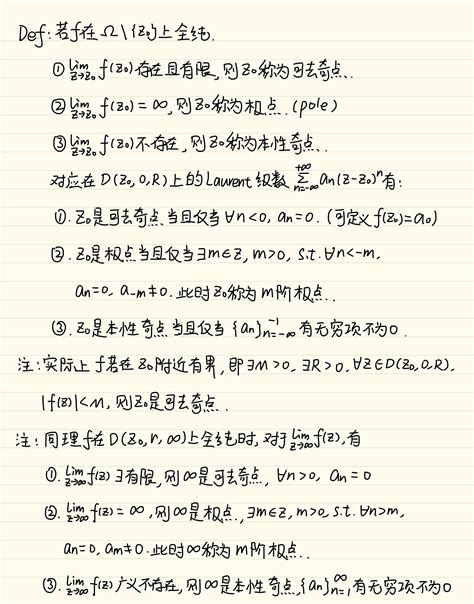 Def: 若f在 Ω\{z₀}上全纯.
① lim_{z→z₀} f(z₀)存在且有限, 则z₀称为可去奇点.
② lim_{z→z₀} f(z₀) = ∞, 则z₀称为极点. (pole)
③ lim_{z→z₀} f(z₀)不存在, 则z₀称为本性奇点.
对应在 D(z₀,0,R)上的Laurent级数 ∑_{n=-∞}^{+∞} aₙ(z-z₀)ⁿ有:
①. z₀是可去奇点当且仅当 ∀n<0, aₙ=0. (可定义f(z₀)=a₀)
②. z₀是极点当且仅当 ∃m∈Z, m>0, s.t. ∀n<-m,
aₙ=0, a₋ₘ≠0. 此时z₀称为m阶极点.
③. z₀是本性奇点当且仅当 {aₙ}_{n=-∞}^{-1} 有无穷项不为0.
注: 实际上 f若在 z₀附近有界, 即 ∃M>0, ∃R>0, ∀z∈D(z₀,0,R),
|f(z)|<M, 则z₀是可去奇点.
注: 同理f在D(z₀,r,∞)上全纯时, 对于 lim_{z→∞} f(z), 有
①. lim_{z→∞} f(z) ∃有限, 则∞是可去奇点, ∀n>0, aₙ=0
②. lim_{z→∞} f(z) = ∞, 则∞是极点, ∃m∈Z, m>0, s.t. ∀n>m,
aₙ=0, aₘ≠0. 此时∞称为m阶极点.
③. lim_{z→∞} f(z) 广义不存在, 则∞是本性奇点, {aₙ}_{n=1}^{∞} 有无穷项不为0